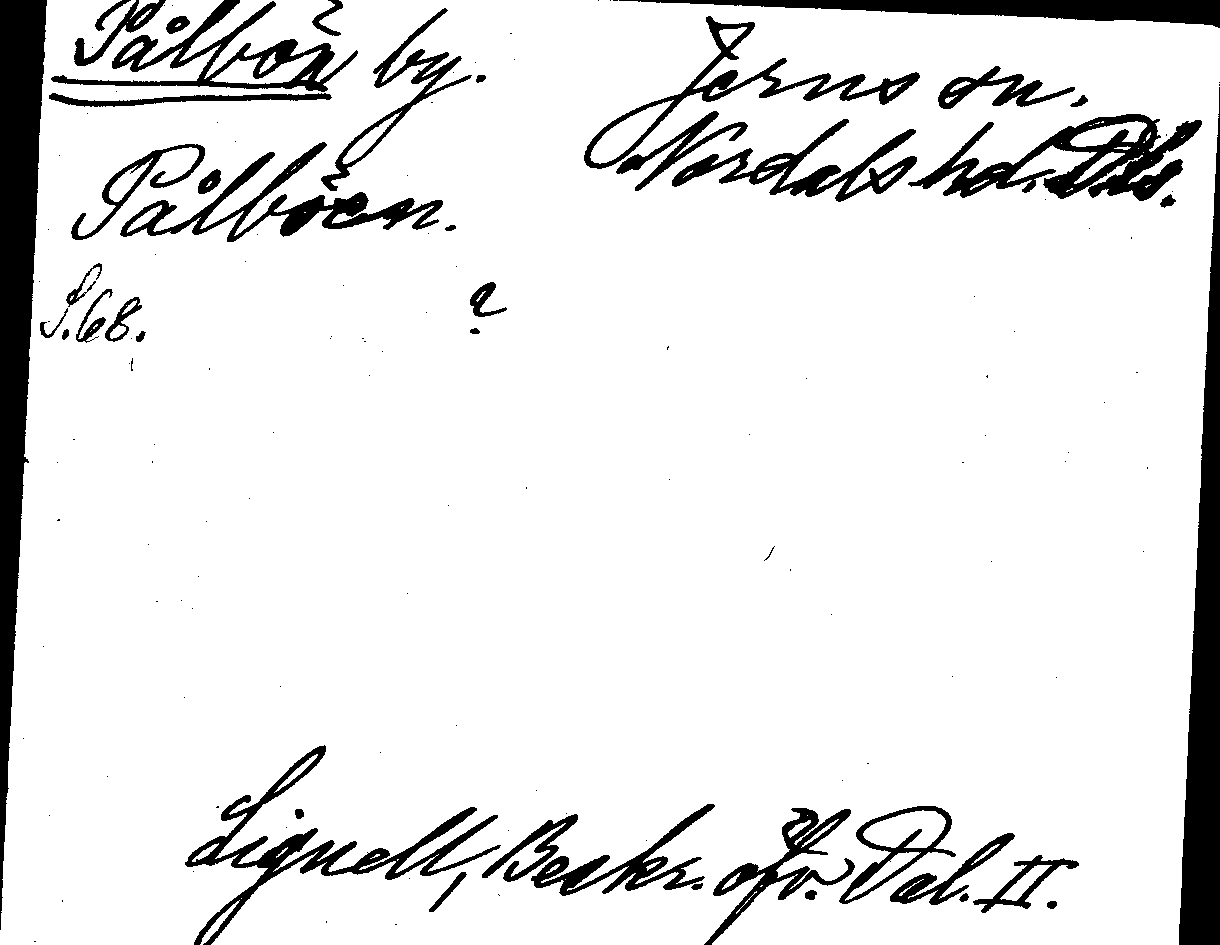 Pålbön by.
Jerns sn.
Nordals hd. Dls.
Pålböen.
S.68. ?
Lignell, Beskr. öfv. Dal. II.